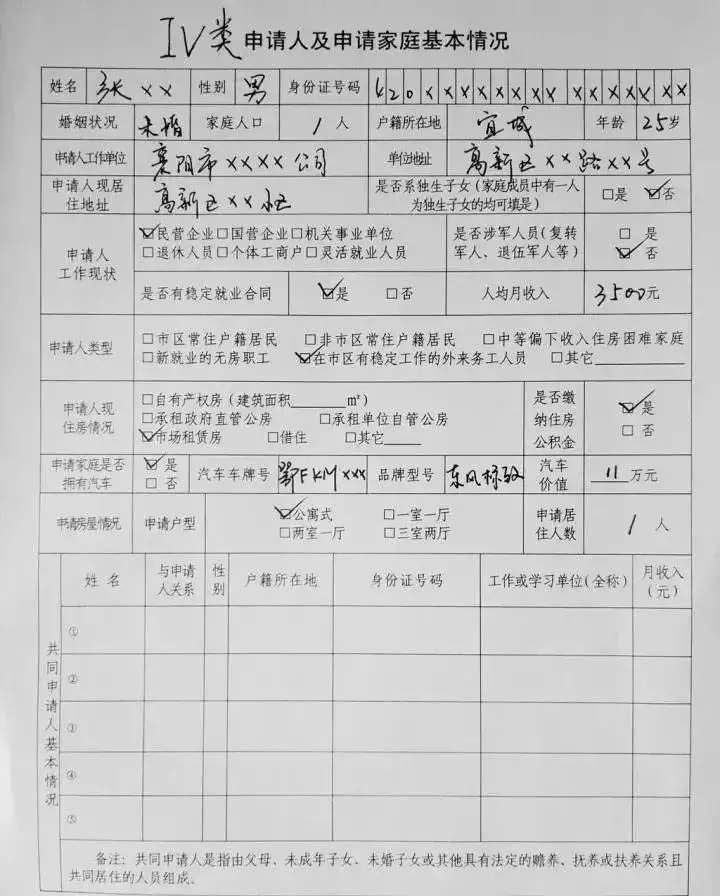 IV类 申请人及申请家庭基本情况
姓名 张×× 性别 男 身份证号码 420×××××××××××××××
婚姻状况 未婚 家庭人口 1人 户籍所在地 宜城 年龄 25岁
申请人工作单位 襄阳市××××公司 单位地址 高新区××路××号
申请人现居住地址 高新区××小区 是否系独生子女(家庭成员中有一人为独生子女的均可填是) □是 ☑否
申请人工作现状 ☑民营企业□国营企业□机关事业单位
□退休人员□个体工商户□灵活就业人员
是否涉军人员(复转军人、退伍军人等) □是 ☑否
是否有稳定就业合同 ☑是 □否 人均月收入 3500元
申请人类型 □市区常住户籍居民 □非市区常住户籍居民 □中等偏下收入住房困难家庭
□新就业的无房职工 ☑在市区有稳定工作的外来务工人员 □其它______
申请人现住房情况 □自有产权房(建筑面积______㎡)
□承租政府直管公房 □承租单位自管公房
☑市场租赁房 □借住 □其它____
是否缴纳住房公积金 ☑是 □否
申请家庭是否拥有汽车 ☑是 □否 汽车车牌号 鄂FKM××× 品牌型号 东风标致 汽车价值 11万元
申请房屋情况 申请户型 ☑公寓式 □一室一厅
□两室一厅 □三室两厅
申请居住人数 1人
共同申请人基本情况
姓名 与申请人关系 性别 户籍所在地 身份证号码 工作或学习单位(全称) 月收入(元)
①
②
③
④
⑤
备注:共同申请人是指由父母、未成年子女、未婚子女或其他具有法定的赡养、抚养或扶养关系且
共同居住的人员组成。